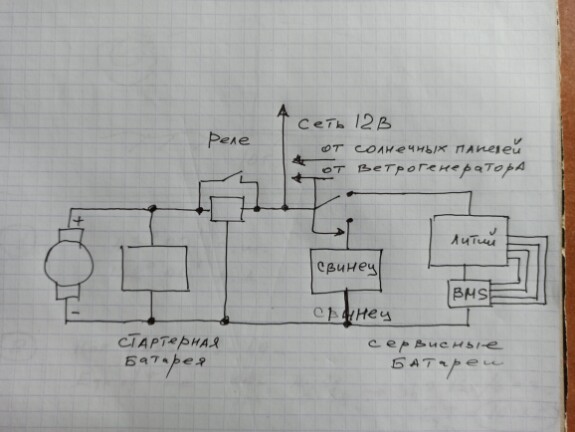 Сеть 12В
Реле
от солнечных панелей
от ветрогенератора
+
Литий
свинец
BMS
-
свинец
стартерная
батарея
сервисные
батареи